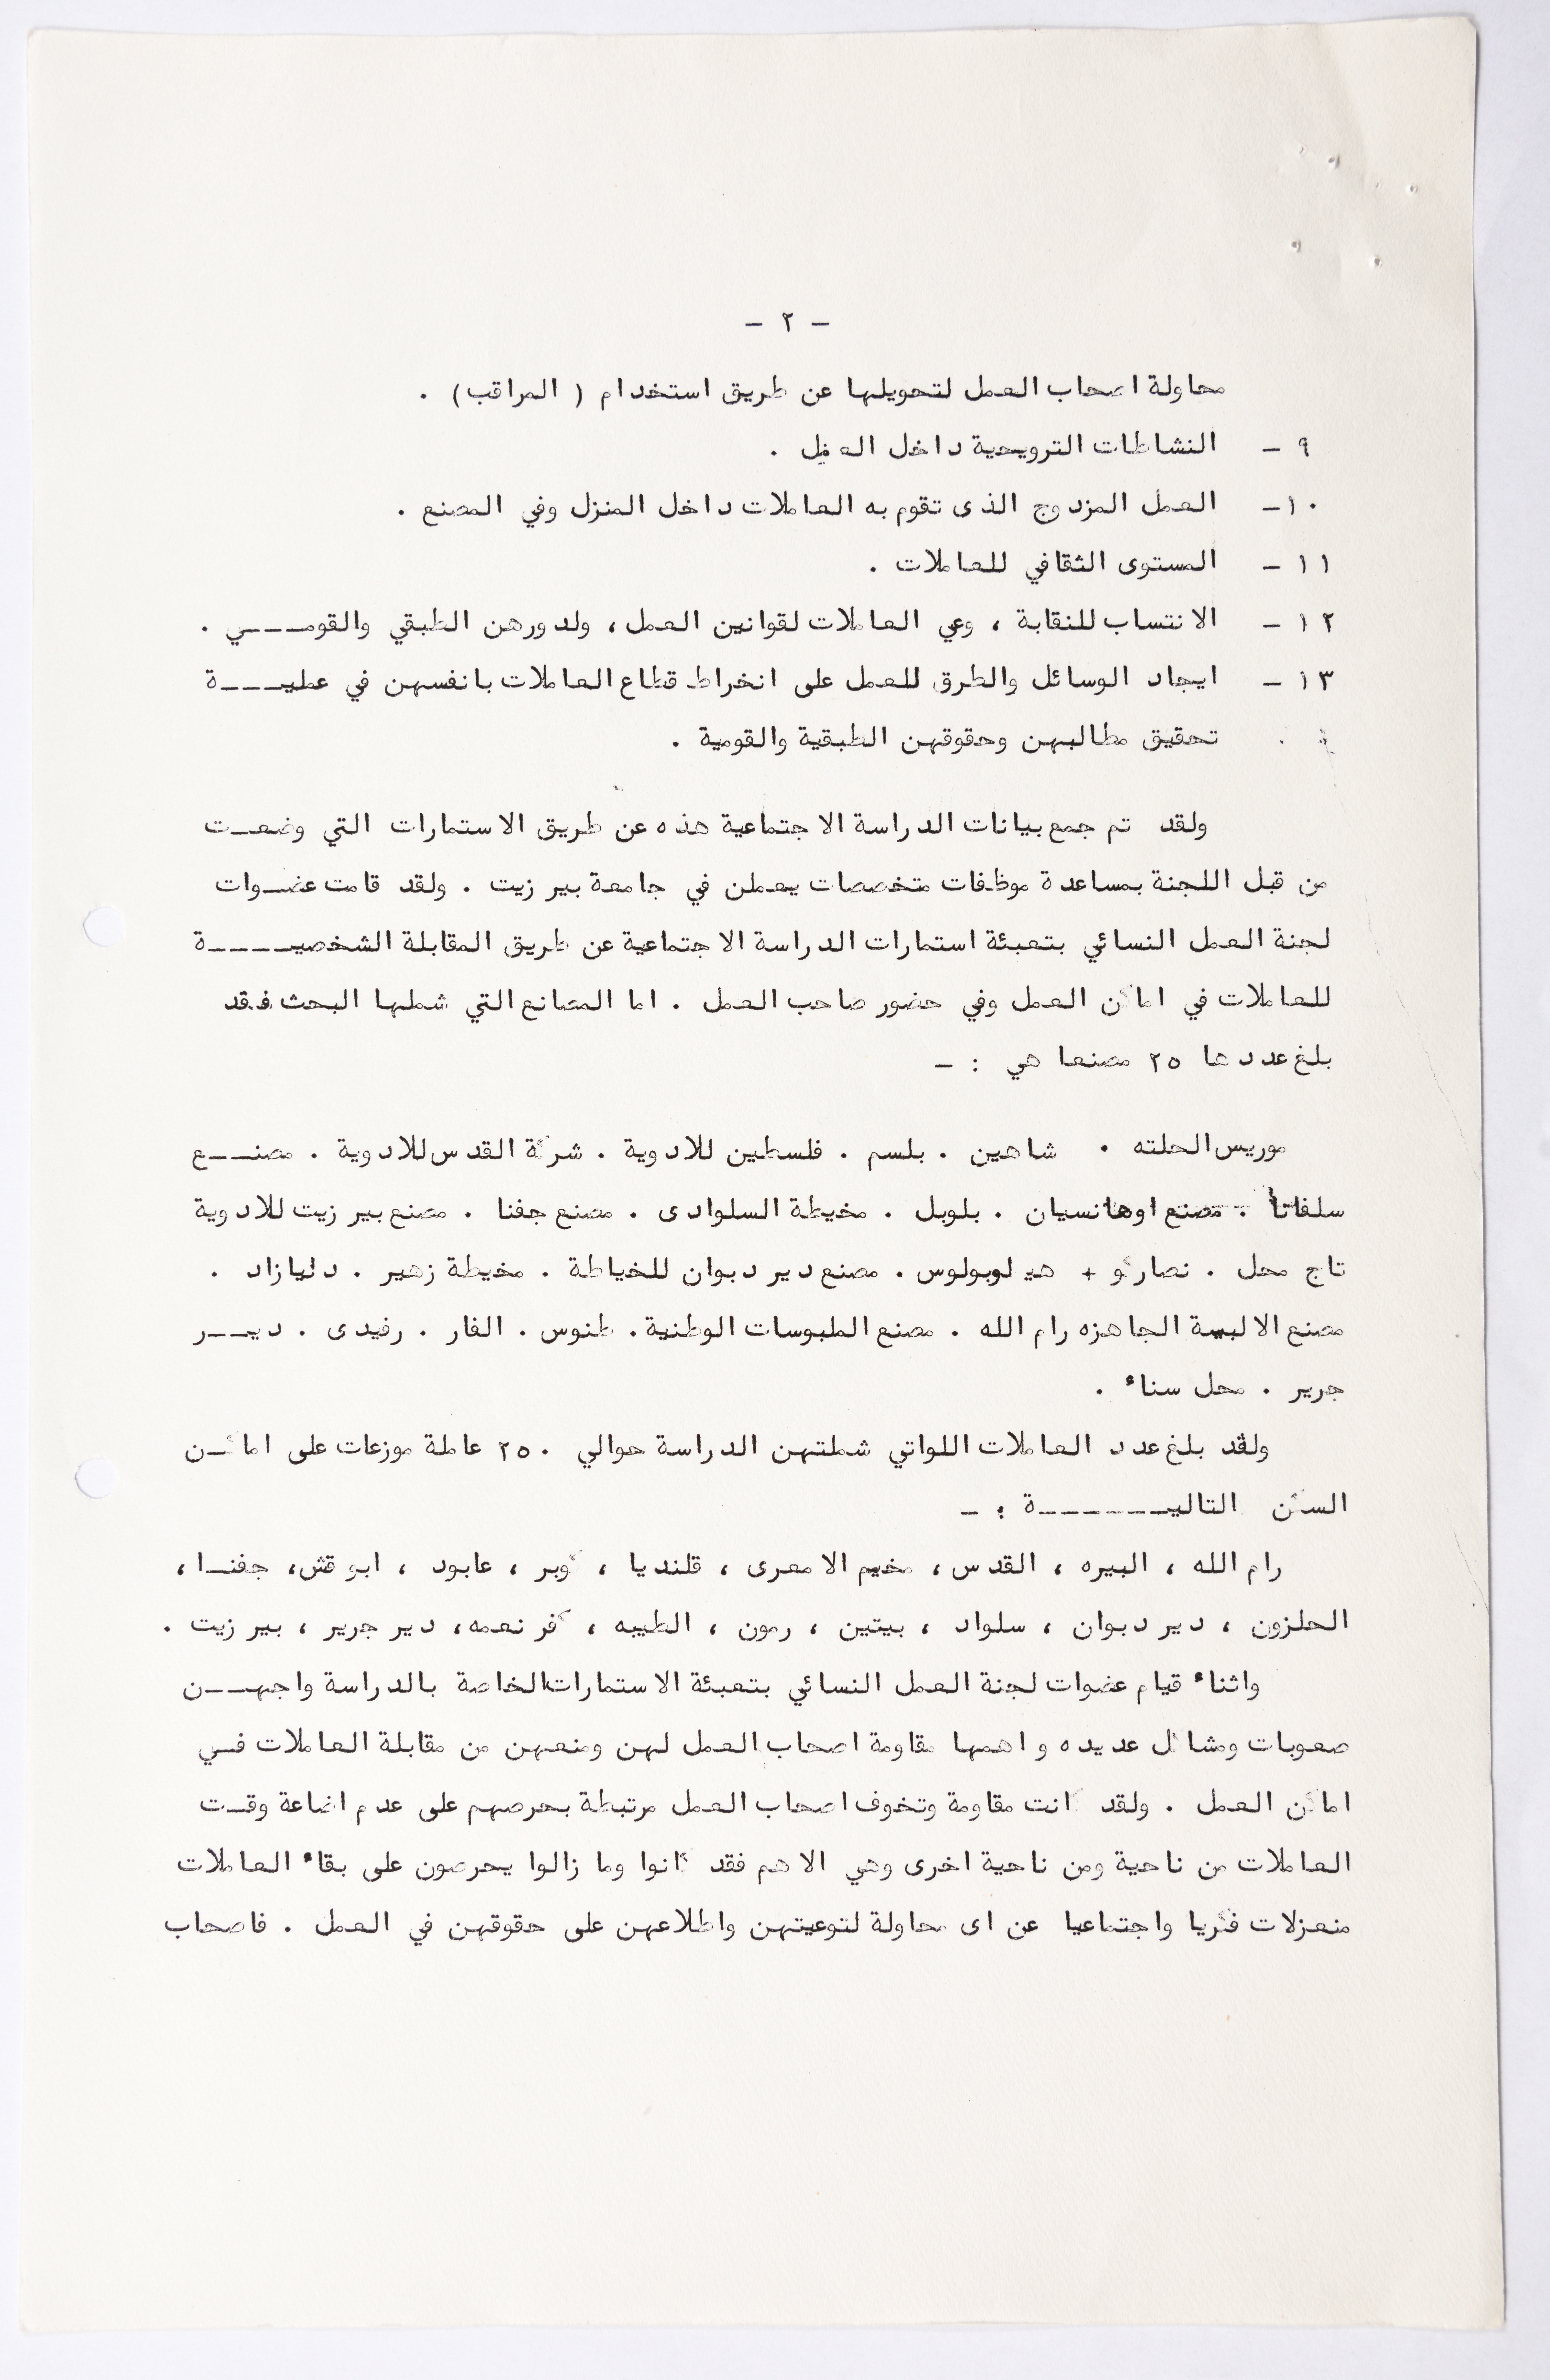 - ٢ -
محاولة اصحاب العمل لتحويلها عن طريق استخدام ( المراقب ) .
٩ - النشاطات الترويحية داخل العمل .
١٠- العمل المزدوج الذى تقوم به العاملات داخل المنزل وفي المصنع .
١١ - المستوى الثقافي للعاملات .
١٢ - الانتساب للنقابة ، وعي العاملات لقوانين العمل ، ولدورهن الطبقي والقومـــي .
١٣ - ايجاد الوسائل والطرق للعمل على انخراط قطاع العاملات بانفسهن في عمليـــة
تحقيق مطالبهن وحقوقهن الطبقية والقومية .
ولقد تم جمع بيانات الدراسة الاجتماعية هذه عن طريق الاستمارات التي وضعـت
من قبل اللجنة بمساعدة موظفات متخصصات يعملن في جامعة بير زيت . ولقد قامت عضـوات
لجنة العمل النسائي بتعبئة استمارات الدراسة الاجتماعية عن طريق المقابلة الشخصيــــة
للعاملات في اماكن العمل وفي حضور صاحب العمل . اما المصانع التي شملها البحث فقد
بلغ عددها ٢٥ مصنعا هي : -
موريس الحلته . شاهين . بلسم . فلسطين للادوية . شركة القدس للادوية . مصنـــع
سلفانا . مصنع اوهانسيان . بلوبل . مخيطة السلوادى . مصنع جفنا . مصنع بير زيت للادوية
تاج محل . نصاركو + هيلوبولوس . مصنع دير دبوان للخياطة . مخيطة زهير . دليازاد .
مصنع الالبسة الجاهزه رام الله . مصنع الملبوسات الوطنية . طنوس . الفار . رفيدى . ديـــر
جرير . محل سناء .
ولقد بلغ عدد العاملات اللواتي شملتهن الدراسة حوالي ٢٥٠ عاملة موزعات على اماكـن
السكن التاليـــــــة : -
رام الله ، البيره ، القدس ، مخيم الامعرى ، قلنديا ، كوبر ، عابود ، ابو قش ، جفنـا ،
الجلزون ، دير دبوان ، سلواد ، بيتين ، رمون ، الطيبه ، كفر نعمه ، دير جرير ، بير زيت .
واثناء قيام عضوات لجنة العمل النسائي بتعبئة الاستمارات الخاصة بالدراسة واجهـــن
صعوبات ومشاكل عديده واهمها مقاومة اصحاب العمل لهن ومنعهن من مقابلة العاملات فـي
اماكن العمل . ولقد كانت مقاومة وتخوف اصحاب العمل مرتبطة بحرصهم على عدم اضاعة وقـت
العاملات من ناحية ومن ناحية اخرى وهي الاهم فقد كانوا وما زالوا يحرصون على بقاء العاملات
منعزلات فكريا واجتماعيا عن اى محاولة لتوعيتهن واطلاعهن على حقوقهن في العمل . فاصحاب